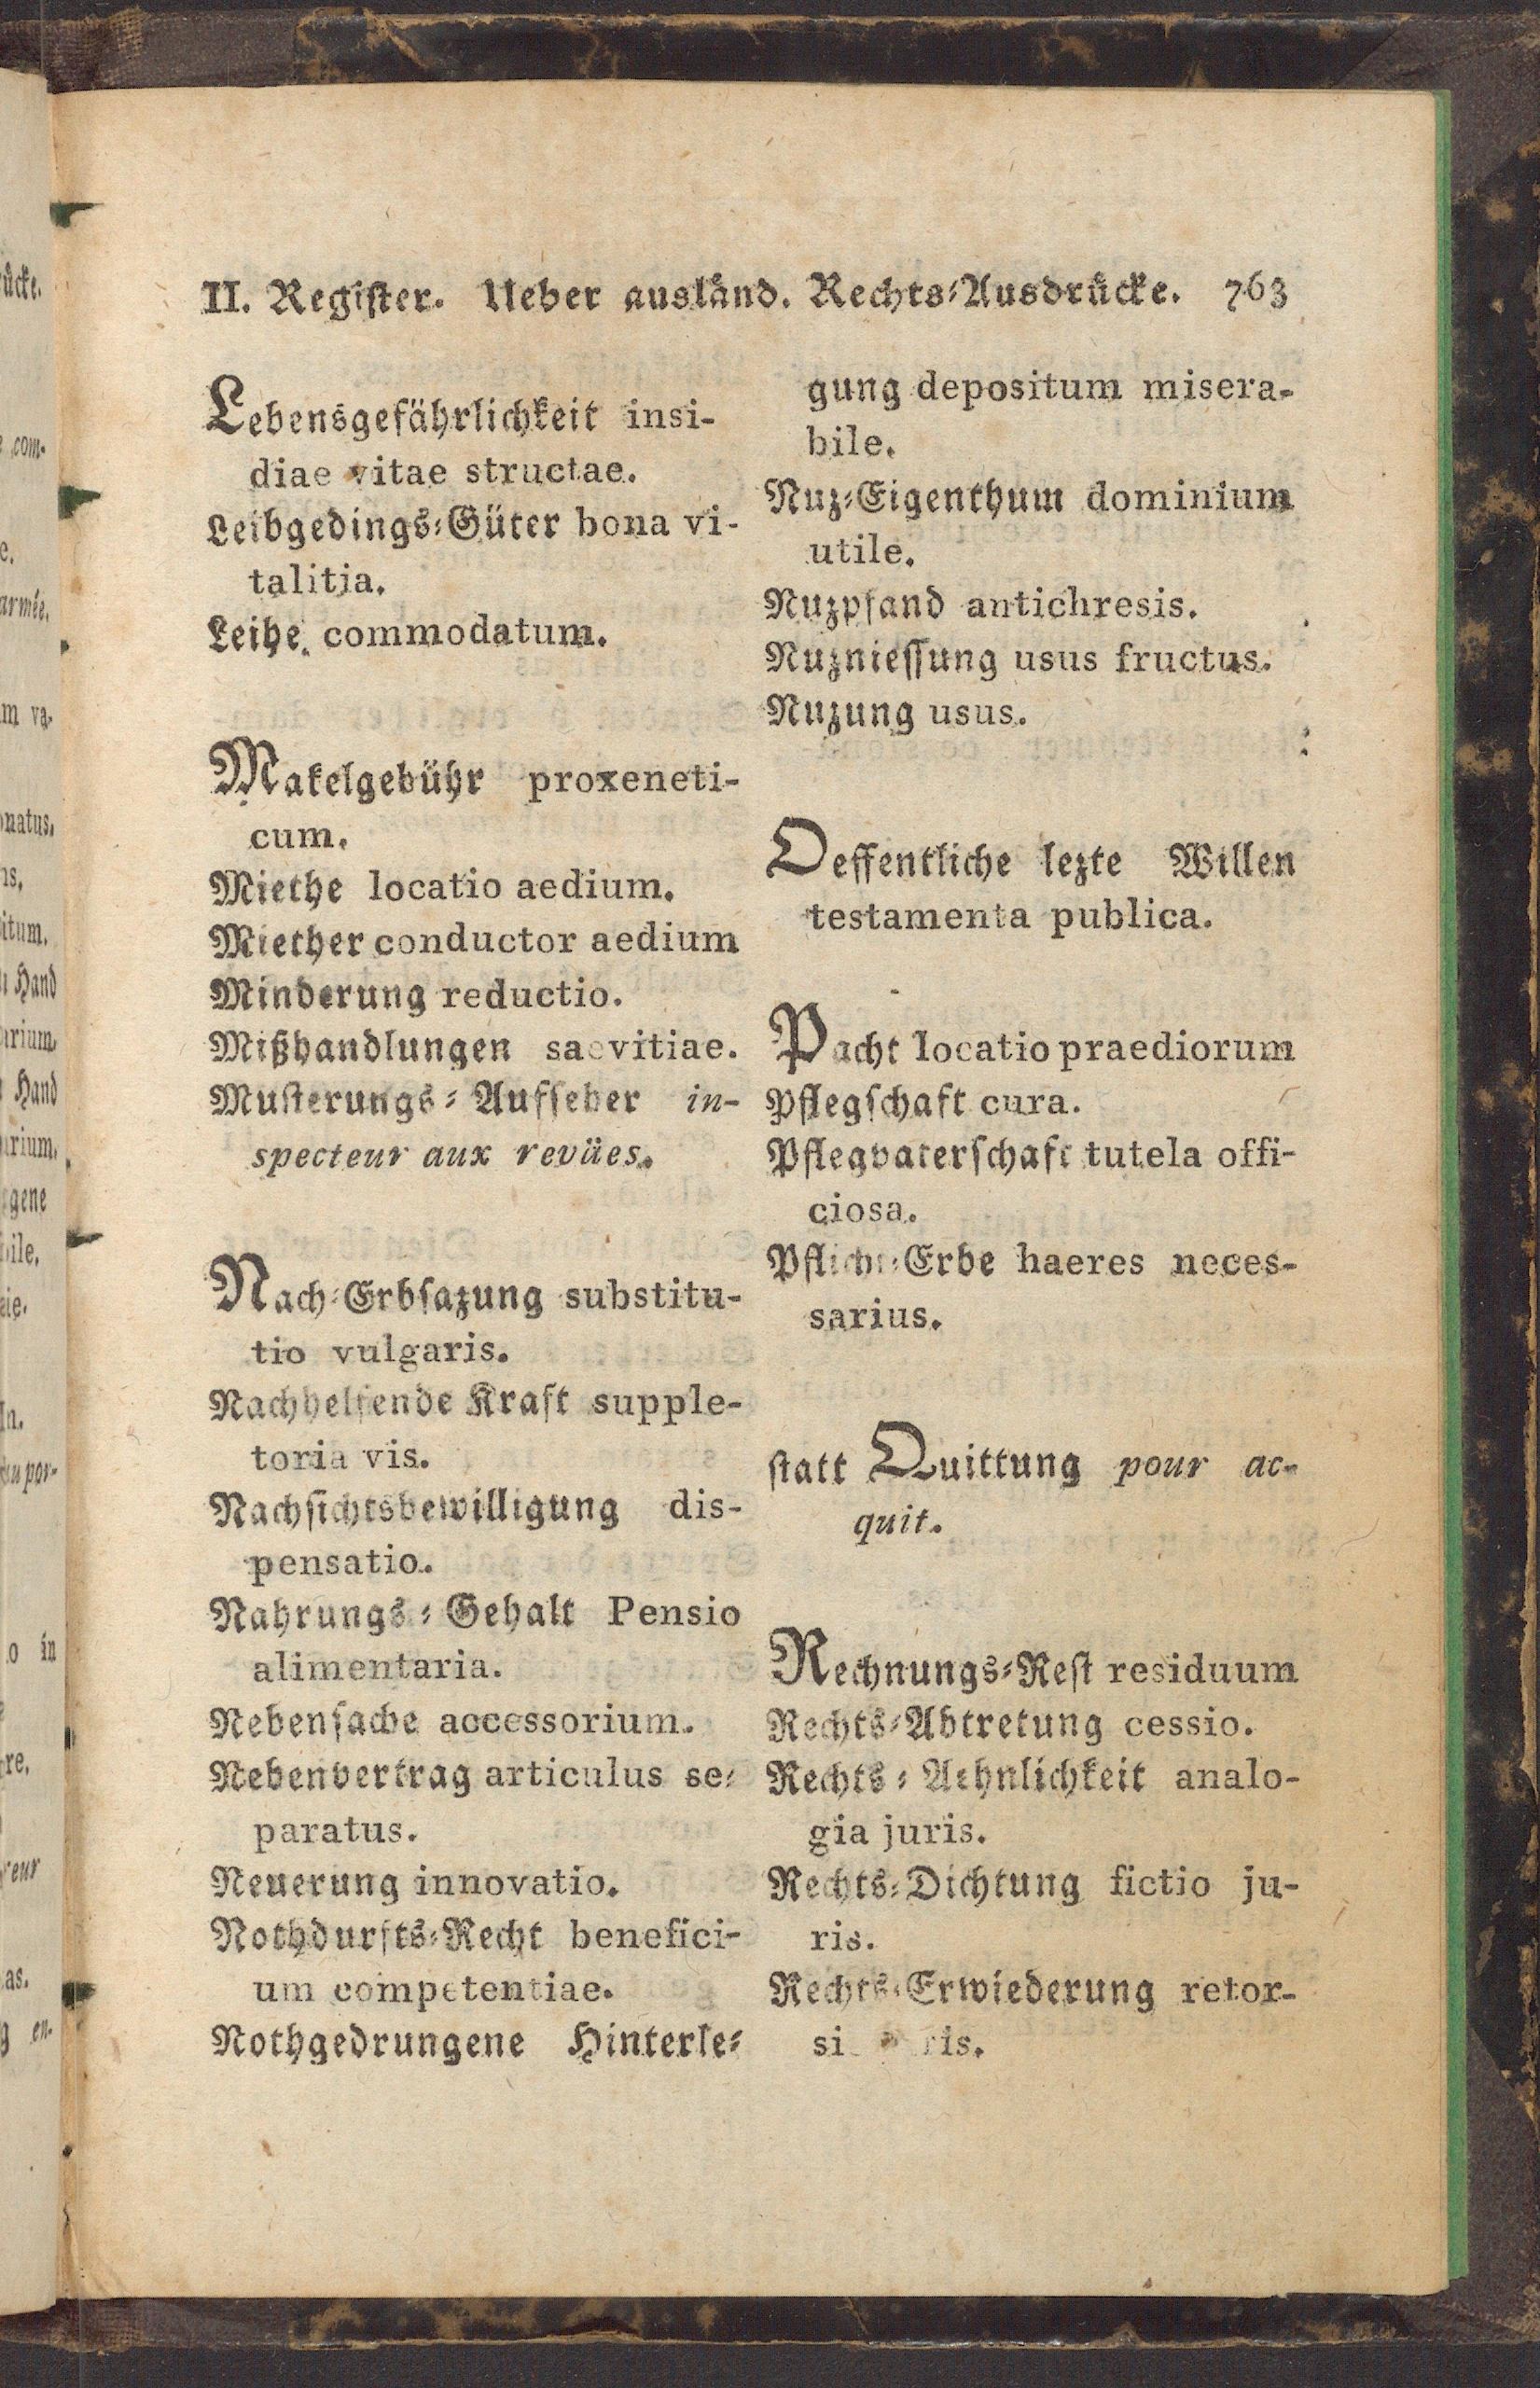 II. Register. Ueber ausländ. Rechts-Ausdrücke. 763
Lebensgefährlichkeit insi-
diae vitae structae.
Leibgedings-Güter bona vi-
talitia.
Leihe commodatum.
Makelgebühr proxeneti-
cum.
Miethe locatio aedium.
Miether conductor aedium
Minderung reductio.
Mißhandlungen saevitiae.
Musterungs-Aufseher in-
specteur aux reväes.
Nach-Erbsazung substitu-
tio vulgaris.
Nachhelfende Kraft supple-
toria vis.
Nachsichtsbewilligung dis-
pensatio.
Nahrungs-Gehalt Pensio
alimentaria.
Nebensache accessorium.
Nebenvertrag articulus se-
paratus.
Neuerung innovatio.
Nothdurfts-Recht benefici-
um competentiae.
Nothgedrungene Hinterle-
gung depositum misera-
bile.
Nuz-Eigenthum dominium
utile.
Nuzpfand antichresis.
Nuzniessung usus fructus.
Nuzung usus.
Oeffentliche lezte Willen
testamenta publica.
Pacht locatio praediorum
Pflegschaft cura.
Pflegvaterschaft tutela offi-
ciosa.
Pflicht-Erbe haeres neces-
sarius.
statt Quittung pour ac-
quit.
Rechnungs-Rest residuum
Rechts-Abtretung cessio.
Rechts-Aehnlichkeit analo-
gia juris.
Rechts-Dichtung fictio ju-
ris.
Rechts-Erwiederung retor-